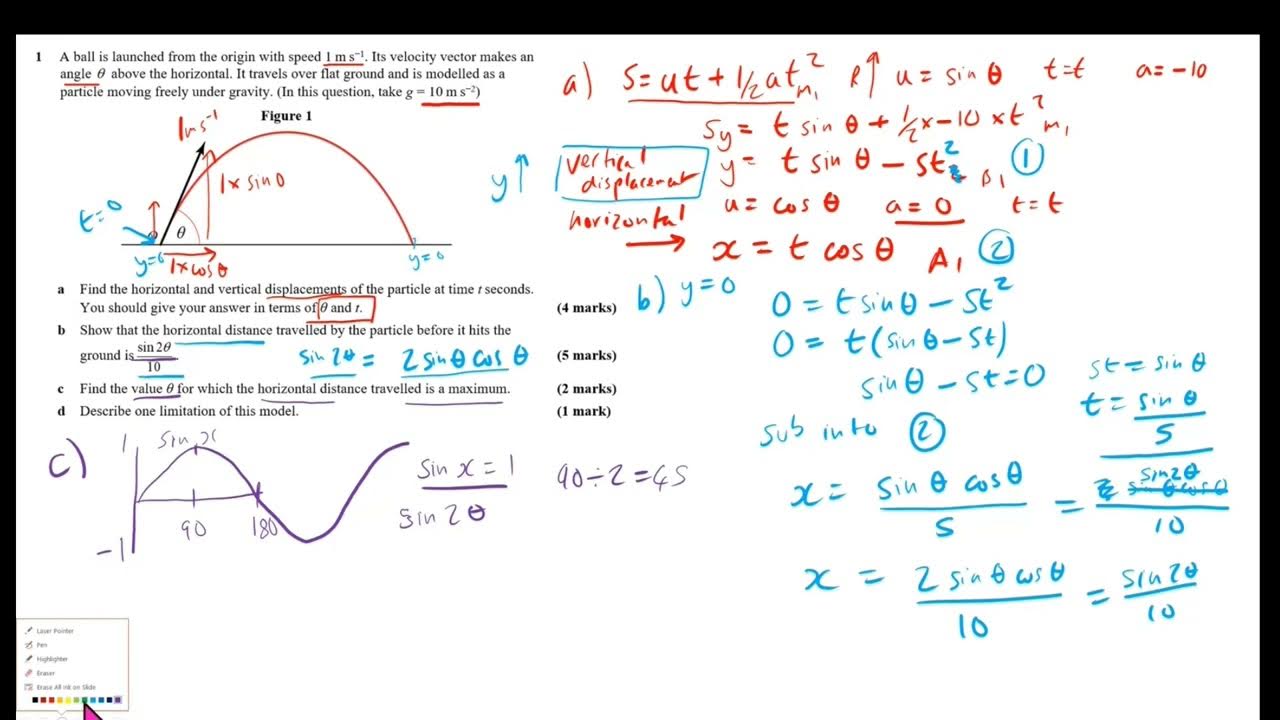 1 A ball is launched from the origin with speed 1 m s⁻¹. Its velocity vector makes an
angle θ above the horizontal. It travels over flat ground and is modelled as a
particle moving freely under gravity. (In this question, take g = 10 m s⁻²)
Figure 1
1ms⁻¹
1×sinθ
t=0
θ
y=0
1×cosθ
y=0
y↑
a Find the horizontal and vertical displacements of the particle at time t seconds.
You should give your answer in terms of θ and t. (4 marks)
b Show that the horizontal distance travelled by the particle before it hits the
ground is sin2θ/10 (5 marks)
sin2θ = 2sinθcosθ
c Find the value θ for which the horizontal distance travelled is a maximum. (2 marks)
d Describe one limitation of this model. (1 mark)
a) S=ut+1/2at² M1 R↑ u=sinθ t=t a=-10
Sy= t sinθ + 1/2×-10×t² M1
vertical
displacement
y= t sinθ - 5t² A1 ①
horizontal
u= cosθ a=0 t=t
x = t cosθ A1 ②
b) y=0
0 = tsinθ - 5t²
0 = t(sinθ-5t)
sinθ-5t=0
5t=sinθ
t= sinθ/5
sub into ②
x = sinθcosθ/5 = sin2θ/10
x = 2sinθcosθ/10 = sin2θ/10
c)
1
sin x
90
180
-1
sin x = 1
sin 2θ
90÷2=45
Laser Pointer
Pen
Highlighter
Eraser
Erase All Ink on Slide